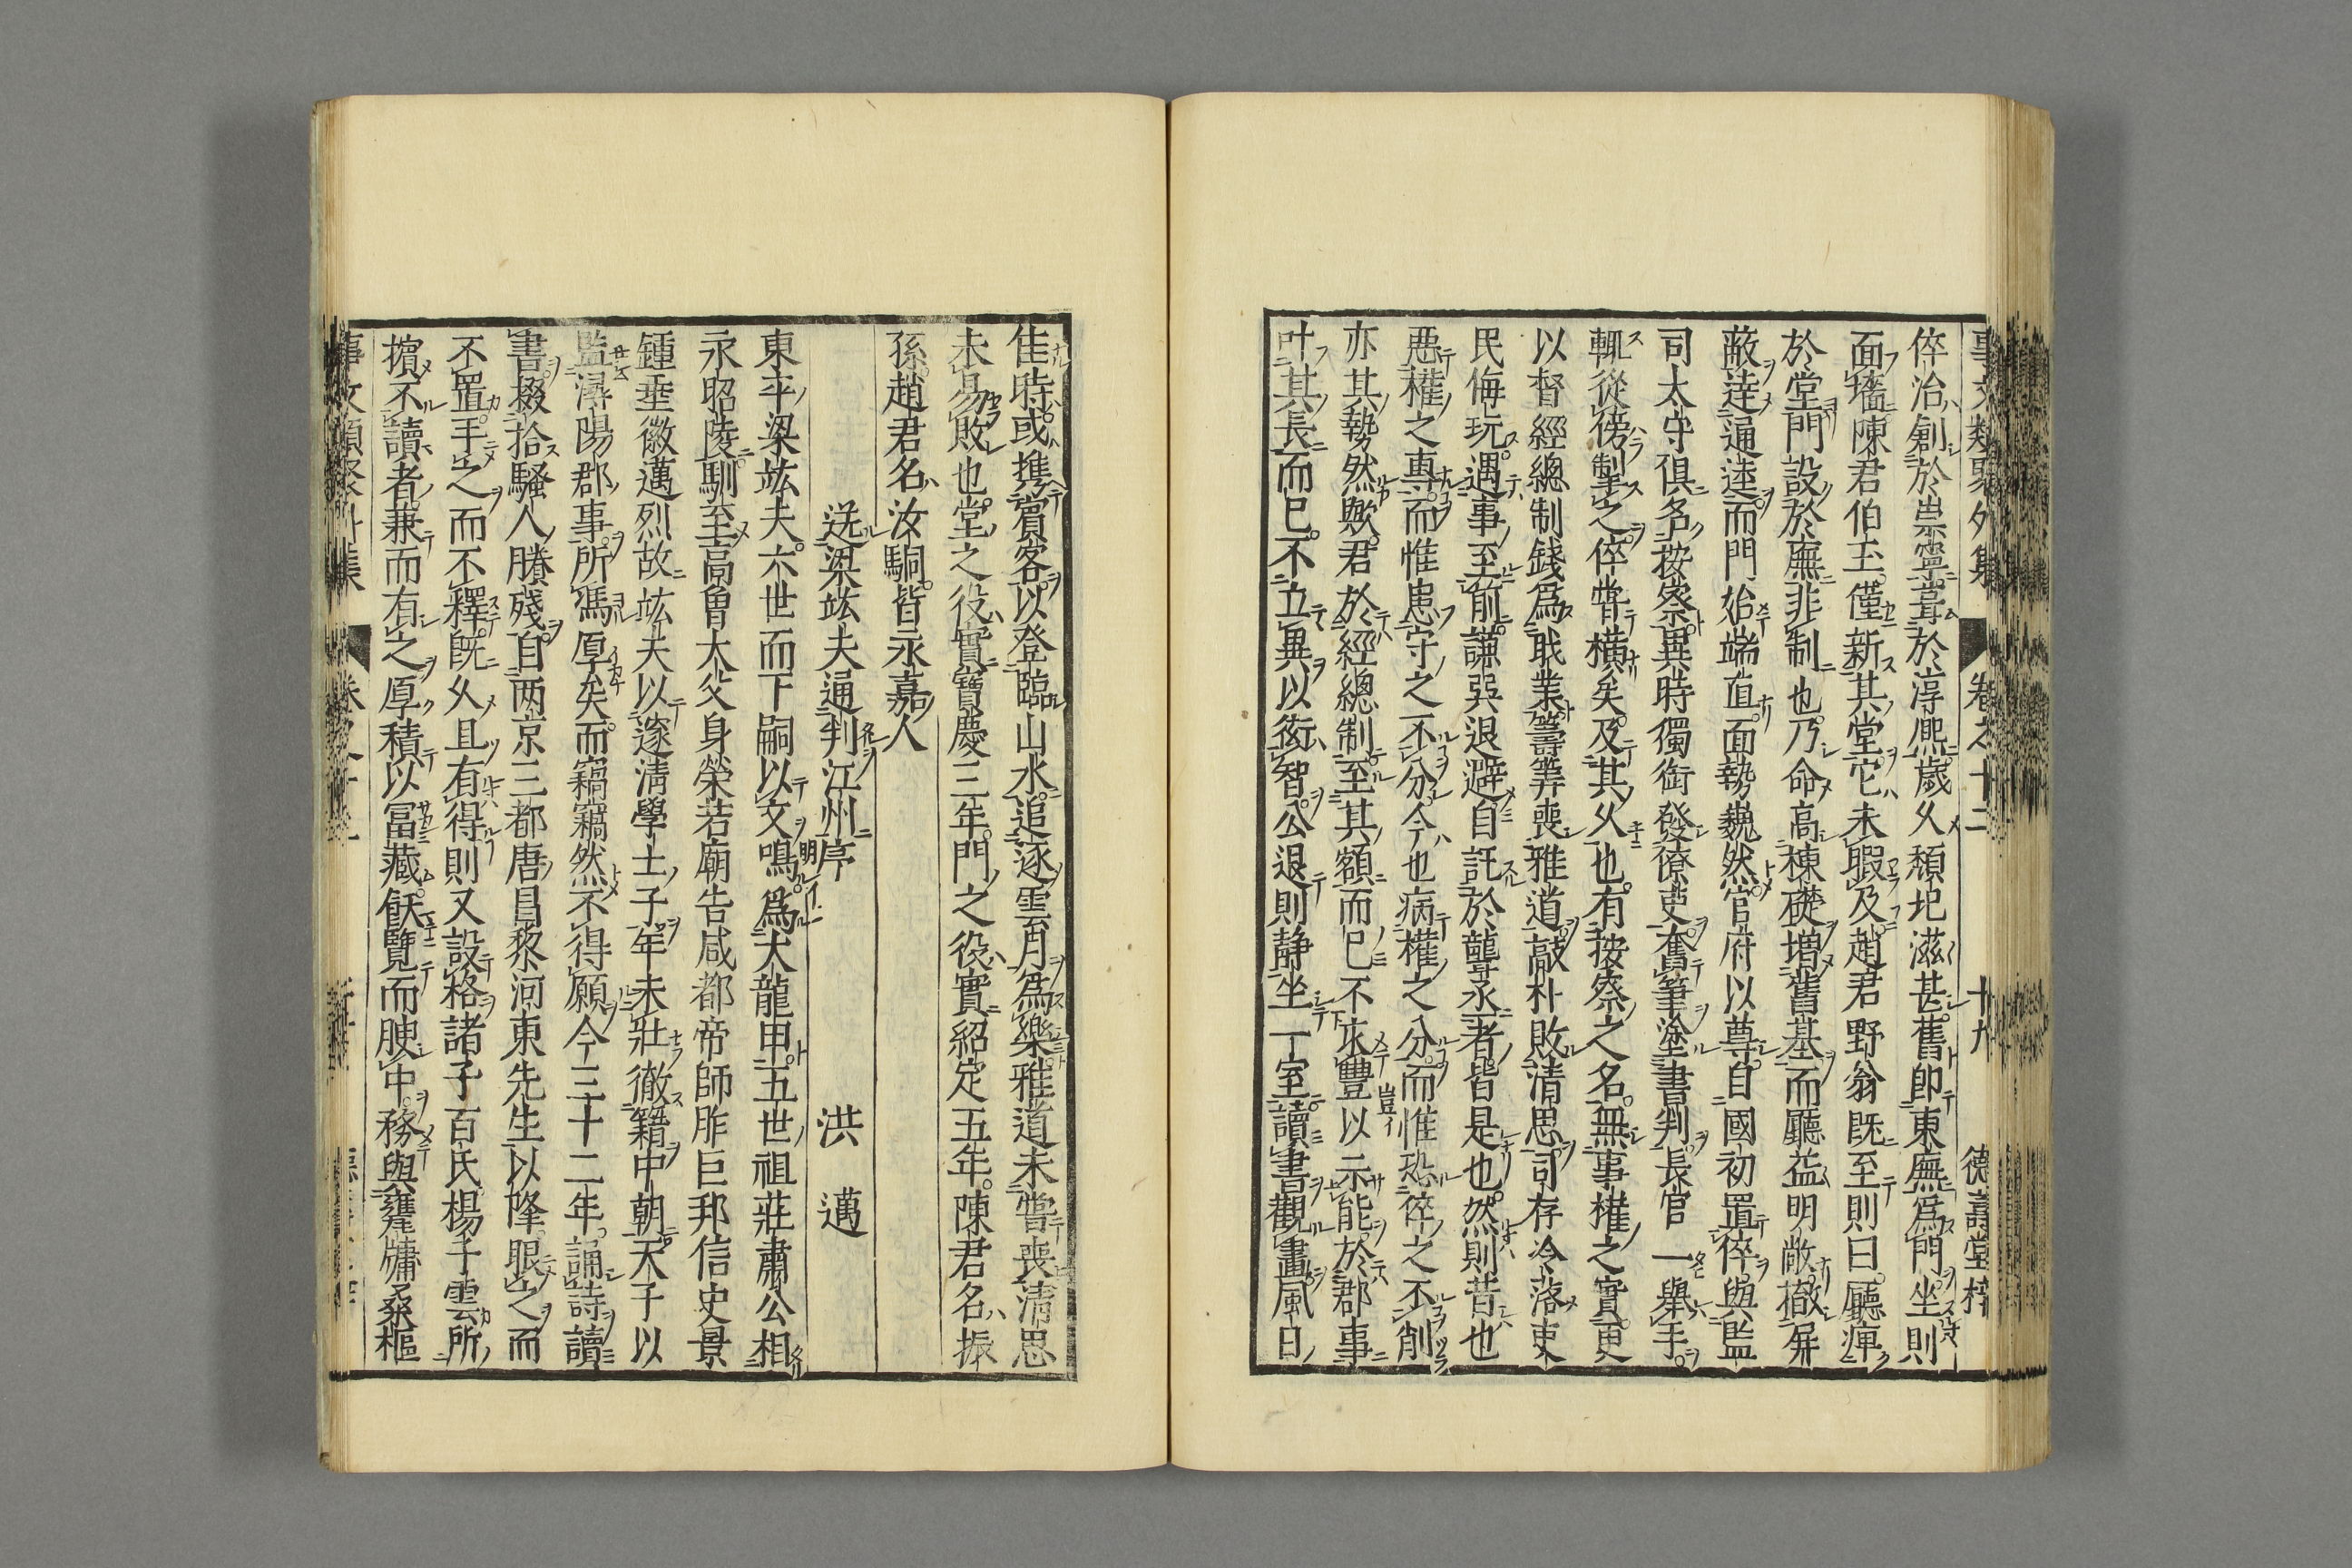 事文類聚外集 卷之十二 十九 德壽堂梓
倅治創於崇寧葺於淳熈歲乆頹圮滋甚舊卽東廡爲門坐則
面墻陳君伯玉僅新其堂它未暇及趙君野翁旣至則曰廳庳
於堂門設於廡非制也乃命高棟礎増舊基而廳益明敞撤屏
蔽逹通逵而門始端直面勢巍然官府以尊自國初置倅與監
司太守俱名按察異時獨銜發僚吏奮筆塗書判長官一舉手
輒從傍掣之倅嘗橫矣及其乆也有按察之名無事權之實更
以督經總制錢爲職業籌筭喪雅道敲朴敗清思司存冷落吏
民侮玩遇事至前謙巽退避自託於聾丞者皆是也然則昔也
惡權之專而惟患守之不分今也病權之分而惟恐倅之不削
亦其勢然歟君於經總制至其額而已不求豐以示能於郡事
叶其長而已不立異以衒智公退則静坐一室讀書觀畫風日
佳時或携賓客以登臨山水追逐雲月爲樂雅道未嘗喪清思
未易敗也堂之役實寶慶三年門之役實紹定五年陳君名振
孫趙君名汝駧皆永嘉人
送梁竑夫通判江州序 洪 邁
東平梁竑夫六世而下嗣以文鳴爲大龍甲五世祖莊肅公相
永昭陵馴至高曾大父身榮若廟告咸都帝師胙巨邦信史景
鍾垂徽邁烈故竑夫以邃清學士子年未壯徹籍中朝天子以
監潯陽郡事所馮厚矣而竊竊然不得願今三十二年誦詩讀
書掇拾騷人賸殘自两京三都唐昌黎河東先生以降眼之而
不置手之而不釋旣乆且有得則又設格諸子百氏楊子雲所
擯不讀者兼而有之厚積以冨藏飫覽而腴中務與蓬牖桑樞